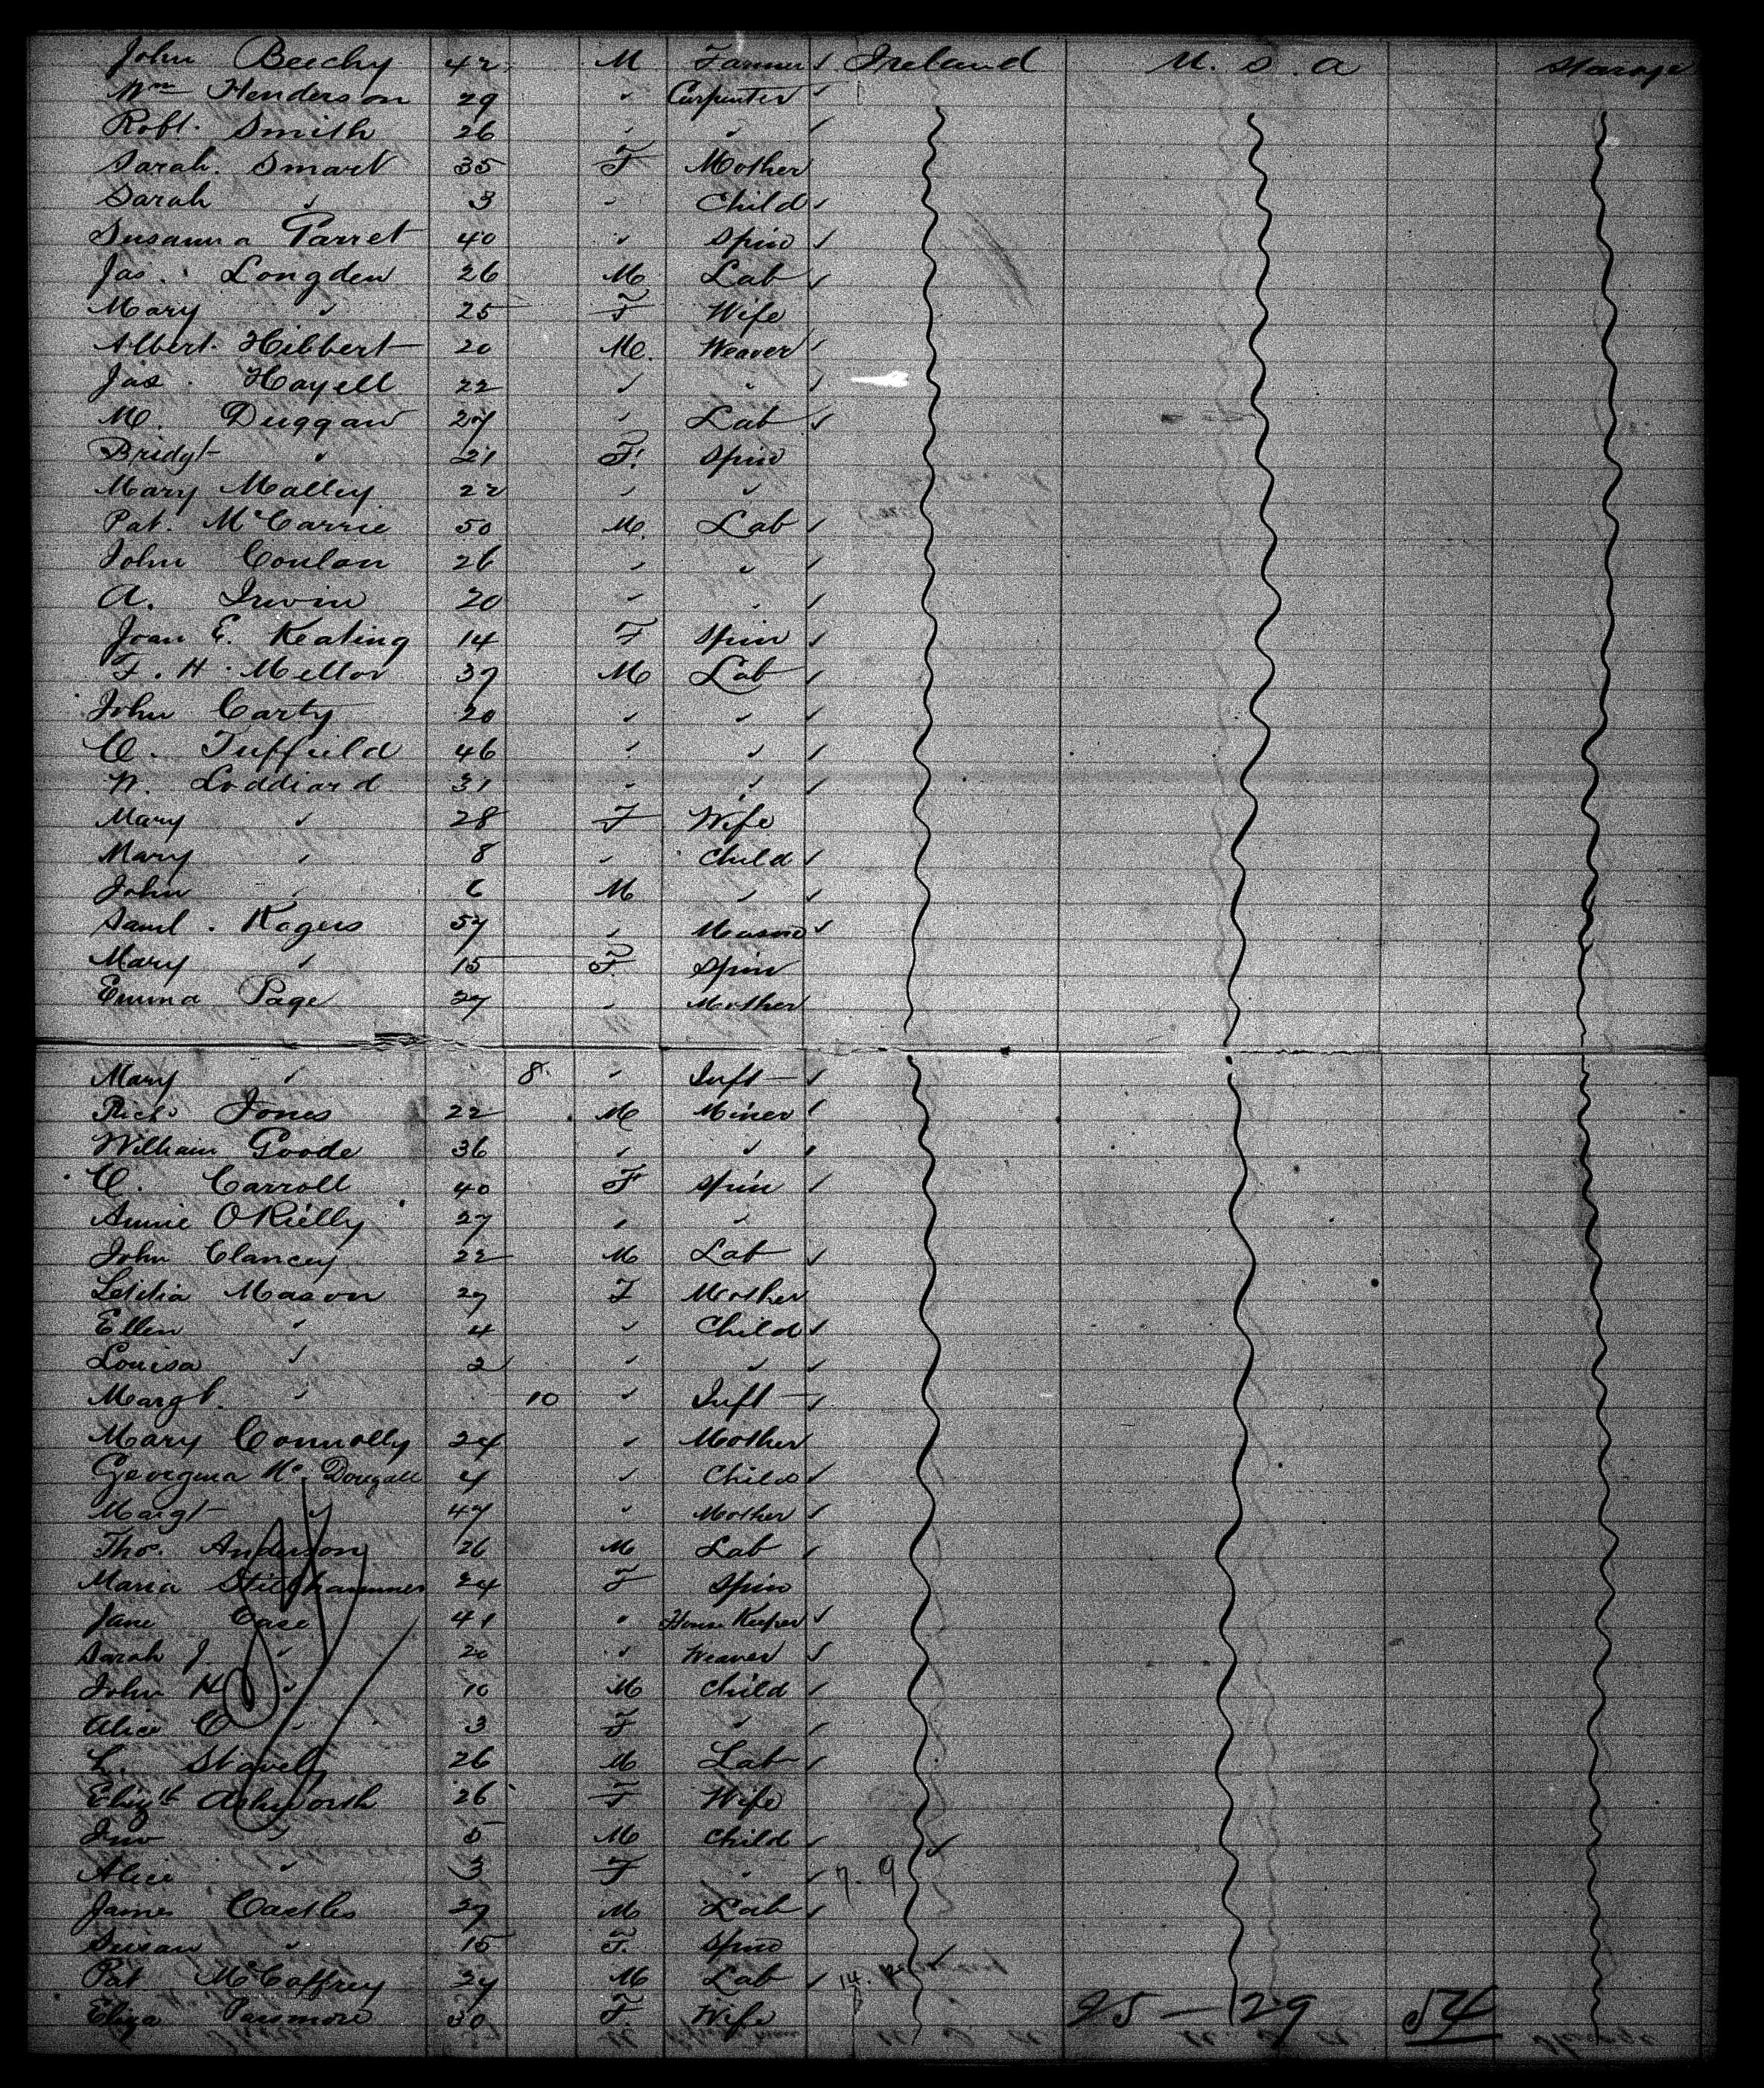 John Beechy 42 M Farmer ✓ Ireland U. S. A Starage
Wm Henderson 29 " Carpenter ✓
Robt. Smith 26 " " ✓
Sarah. Smart 35 F Mother
Sarah " 3 " Child ✓
Susanna Parret 40 " Spin ✓
Jas. Longden 26 M Lab ✓
Mary " 25 F Wife
Albert. Hibbert 20 M. Weaver ✓
Jas. Hayell 22 " " ✓
M. Duggan 27 " Lab ✓
Bridgt " 21 F. Spin
Mary Malley 22 " "
Pat. McCarrie 50 M. Lab ✓
John Conlan 26 " " ✓
A. Irwin 20 " " ✓
Joan E. Keating 14 F Spin ✓
F. H. Mellor 37 M Lab ✓
John Carty 20 " " ✓
C. Tuffield 46 " " ✓
W. Loddiard 31 " " ✓
Mary " 28 F Wife
Mary " 8 " Child ✓
John " 6 M " ✓
Saml. Rogers 57 " Mason ✓
Mary " 15 F. Spin
Emma Page 27 " Mother
Mary " 8. " Inft ✓
Richd Jones 22 M Miner ✓
William Goode 36 " " ✓
C. Carroll 40 F Spin ✓
Annie O'Rielly 27 " "
John Clancey 22 M Lab ✓
Letitia Mason 27 F Mother
Ellen " 4 " Child ✓
Louisa " 2 " " ✓
Margt. " 10 " Inft ✓
Mary Connolly 24 " Mother
Georgina Mc Dougall 4 " Child ✓
Margt " 47 " Mother ✓
Thos. Anderson 26 M Lab ✓
Maria 24 F Spin
Jane Case 41 " House Keeper ✓
Sarah J. " 20 " Weaver ✓
John H " 10 M Child ✓
Alice C " 3 F " ✓
L. Stavely 26 M Lab ✓
Elizth Ashworth 26 F Wife
Jno " 5 M Child ✓
Alice " 3 F " ✓ 7 - 9
James Castles 27 M Lab ✓
Susan " 15 F. Spin
Pat McCaffrey 27 M Lab ✓ 14.
Eliza Passmore 30 F. Wife 25 — 29 54